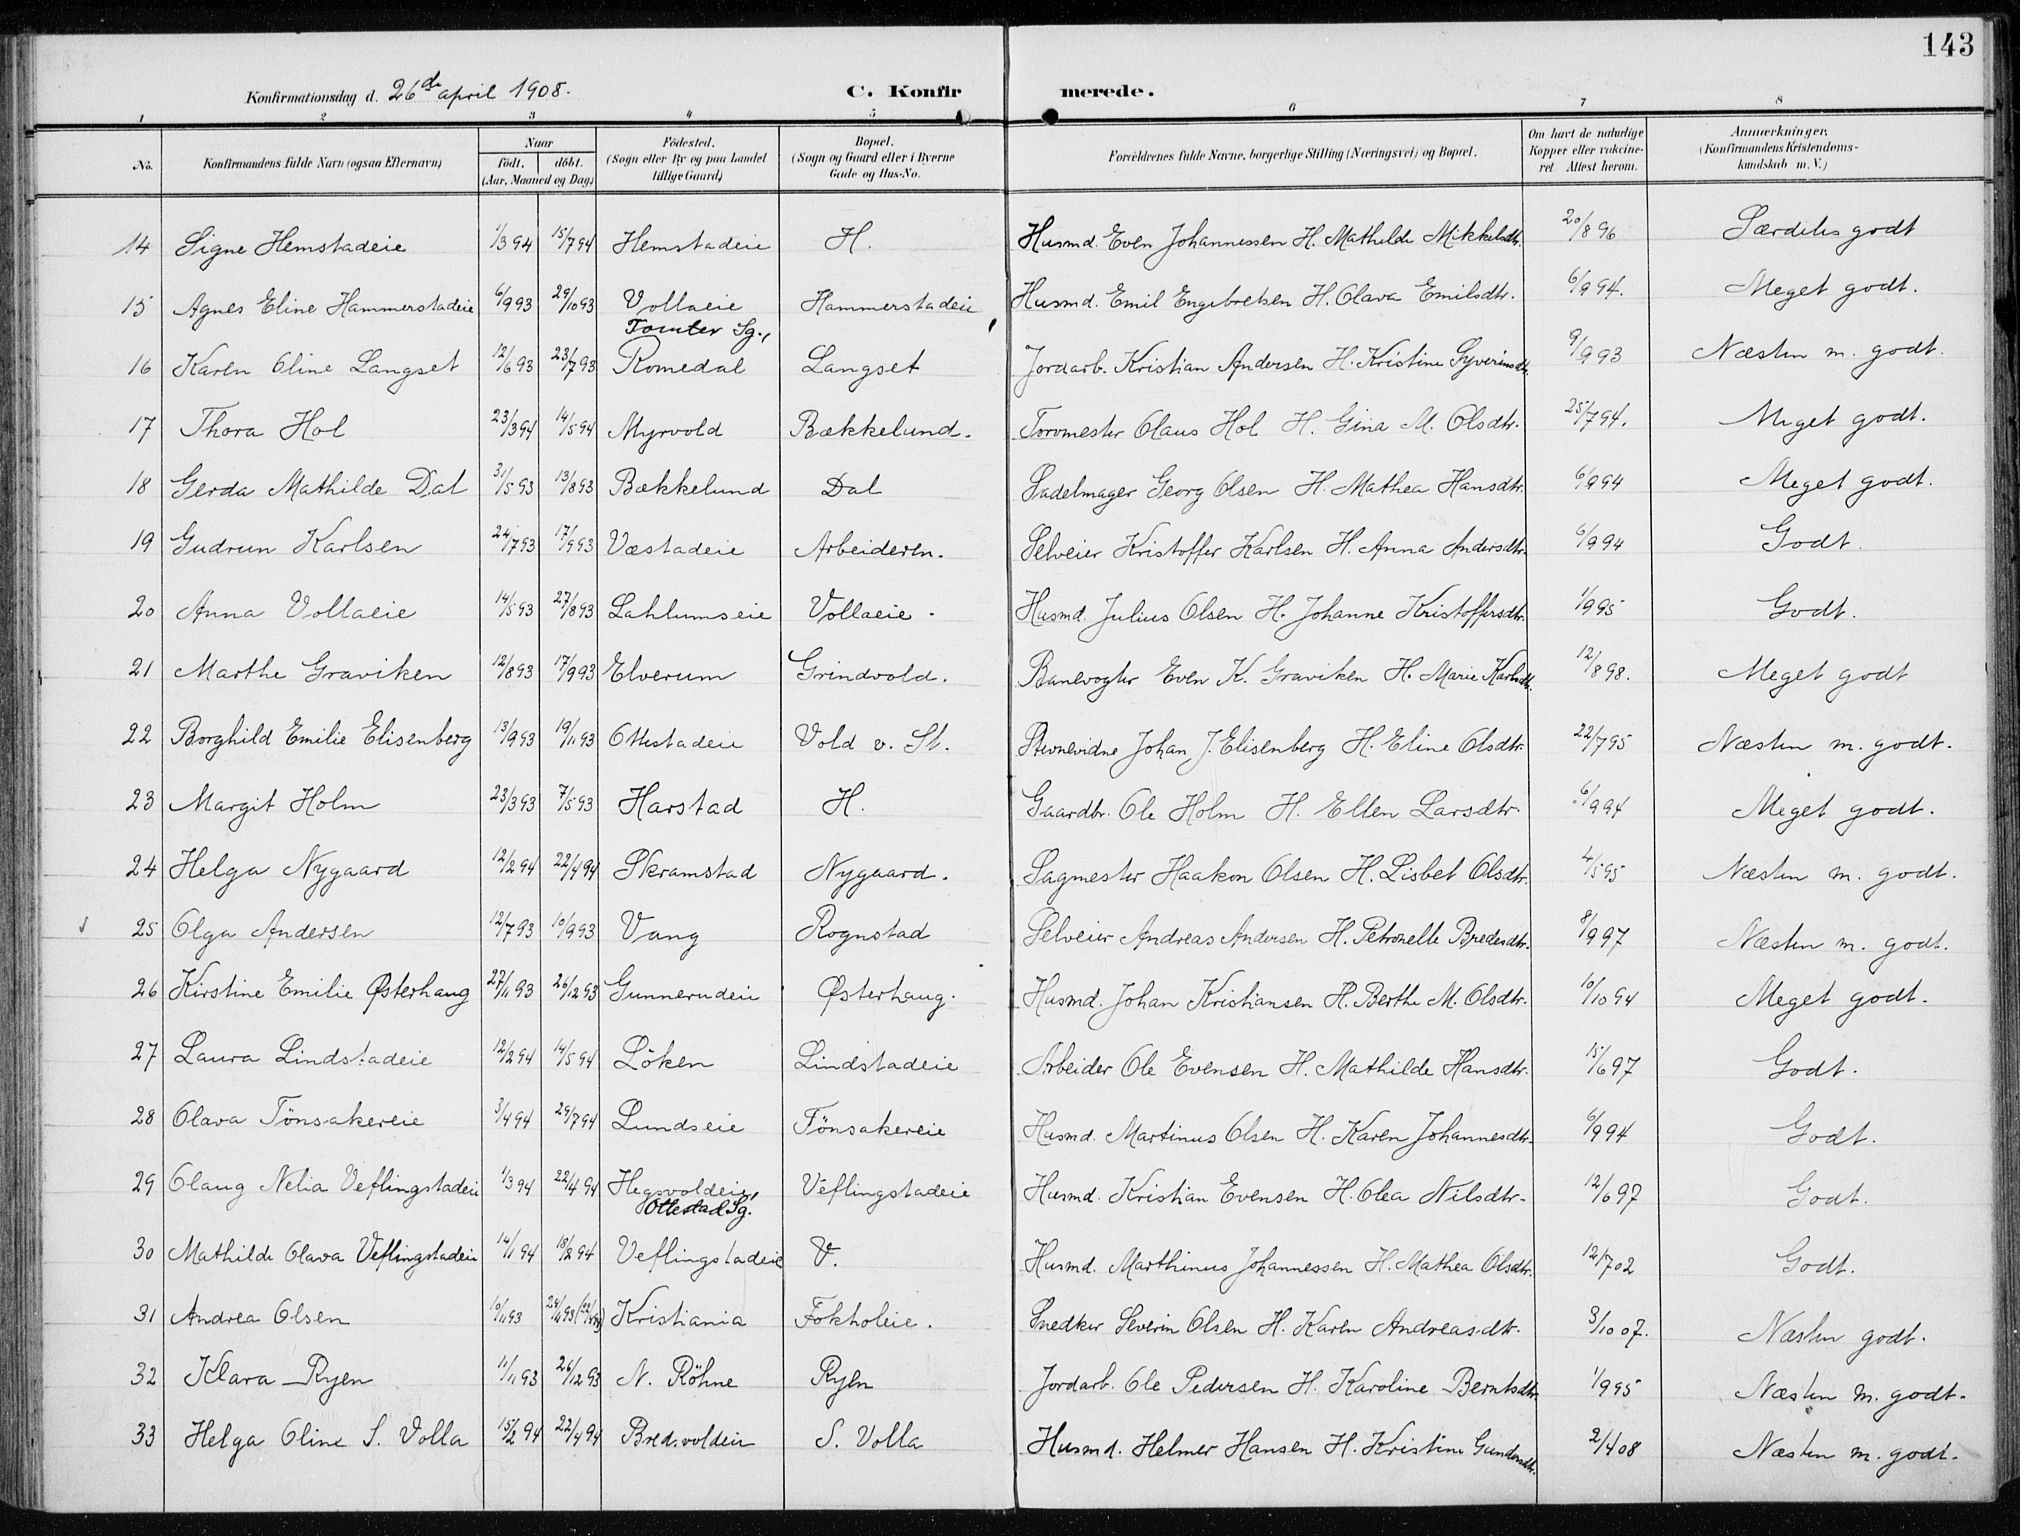 143
Konfirmationsdag d. 26de april 1908. C. Konfirmerede.
1 2 3 4 5 6 7 8
No. Konfirmandens fulde Navn (ogsaa Efternavn) Naar født. døbt. (Aar, Maaned og Dag) Fødested. (Sogn eller By og paa Landet tillige Gaard) Bopæl. (Sogn og Gaard eller i Byerne Gade og Hus-No. Forældrenes fulde Navne, borgerlige Stilling (Næringsvei) og Bopæl. Om havt de naturlige Kopper eller vakcineret. Attest herom. Anmerkninger. (Konfirmandens Kristendomskundskab m. V.)
14 Signe Hemstadeie 1/3 94 15/7 94 Hemstadeie H. Husmd. Even Johannessen H. Mathilde Mikkelsdtr. 20/8 96 Særdeles godt
15 Agnes Eline Hammerstadeie 6/9 93 29/10 93 Vollaeie Hammerstadeie Husmd. Emil Engebretsen H. Olava Emilsdtr. 6/9 94. Meget godt.
16 Karen Oline Langset 12/6 93 23/7 93 Tomter Sg., Romedal Langset Jordarb. Kristian Andersen H. Kristine Syverinsdtr. 9/9 93 Næsten m. godt.
17 Thora Hol 23/3 94 14/5 94 Myrvold Bækkelund. Torvmester Olaus Hol H. Gina M. Olsdtr. 25/7 94. Meget godt.
18 Gerda Mathilde Dal 31/5 93 13/8 93 Bækkelund Dal Sadelmager Georg Olsen H. Mathea Hansdtr. 6/9 94 Meget godt.
19 Gudrun Karlsen 24/7 93 17/9 93 Væstadeie Arbeideren. Selveier Kristoffer Karlsen H. Anna Andersdtr. 6/9 94 Godt.
20 Anna Vollaeie 14/5 93 27/8 93 Lahlumseie Vollaeie. Husmd. Julius Olsen H. Johanne Kristoffersdtr. 1/9 95 Godt.
21 Marthe Graviken 12/8 93 17/9 93 Elverum Grindvold. Banevogter Even K. Graviken H. Marie Karlsdtr. 12/8 98. Meget godt
22 Borghild Emilie Elisenberg 13/9 93 19/11 93 Ottestadeie Vold v. St. Stevnevidne Johan J. Elisenberg H. Eline Olsdtr. 22/7 95 Næsten m. godt.
23 Margit Holm 23/3 93 7/5 93 Harstad H. Gaardbr. Ole Holm H. Ellen Larsdtr. 6/9 94 Meget godt.
24 Helga Nygaard 12/2 94 22/4 94 Skramstad Nygaard. Sagmester Haakon Olsen H. Lisbet Olsdtr. 4/5 95 Næsten m. godt.
25 Olga Andersen 12/7 93 10/9 93 Vang Rognstad Selveier Andreas Andersen H. Petronelle Bredesdtr. 8/9 97 Næsten m. godt.
26 Kirstine Emilie Østerhaug 27/11 93 26/12 93 Gunnerudeie Østerhaug. Husmd. Johan Kristiansen H. Berthe M. Olsdtr. 10/10 94 Meget godt.
27 Laura Lindstadeie 12/2 94 14/5 94 Løken Lindstadeie Arbeider Ole Evensen H. Mathilde Hansdtr. 15/6 97 Godt.
28 Olava Tönsakereie 3/4 94 29/7 94 Lundseie Tönsakereie Husmd. Martinus Olsen H. Karen Johannesdtr. 6/9 94 Godt.
29 Olaug Nelia Veflingstadeie 1/3 94 22/4 94 Hegsvoldeie, Ottestad Sg. Veflingstadeie Husmd. Kristian Evensen H. Olea Nilsdtr. 12/6 97 Godt.
30 Mathilde Olava Veflingstadeie 14/1 94 18/2 94 Veflingstadeie V. Husmd. Marthinus Johannessen H. Mathea Olsdtr. 12/7 02 Godt.
31 Andrea Olsen 10/11 93 Kristiania Fokholeie. Snedker Severin Olsen H. Karen Andreasdtr. 3/10 07. Næsten godt.
32 Klara Ryen 11/11 93 26/12 93 N. Röhne Ryen Jordarb. Ole Pedersen H. Karoline Berntsdtr. 1/9 95 Næsten m. godt.
33 Helga Oline S. Volla 15/2 94 22/4 94 Bredsvoldeie S. Volla Husmd. Helmer Hansen H. Kristine Gundersdtr. 2/4 08 Næsten m. godt.